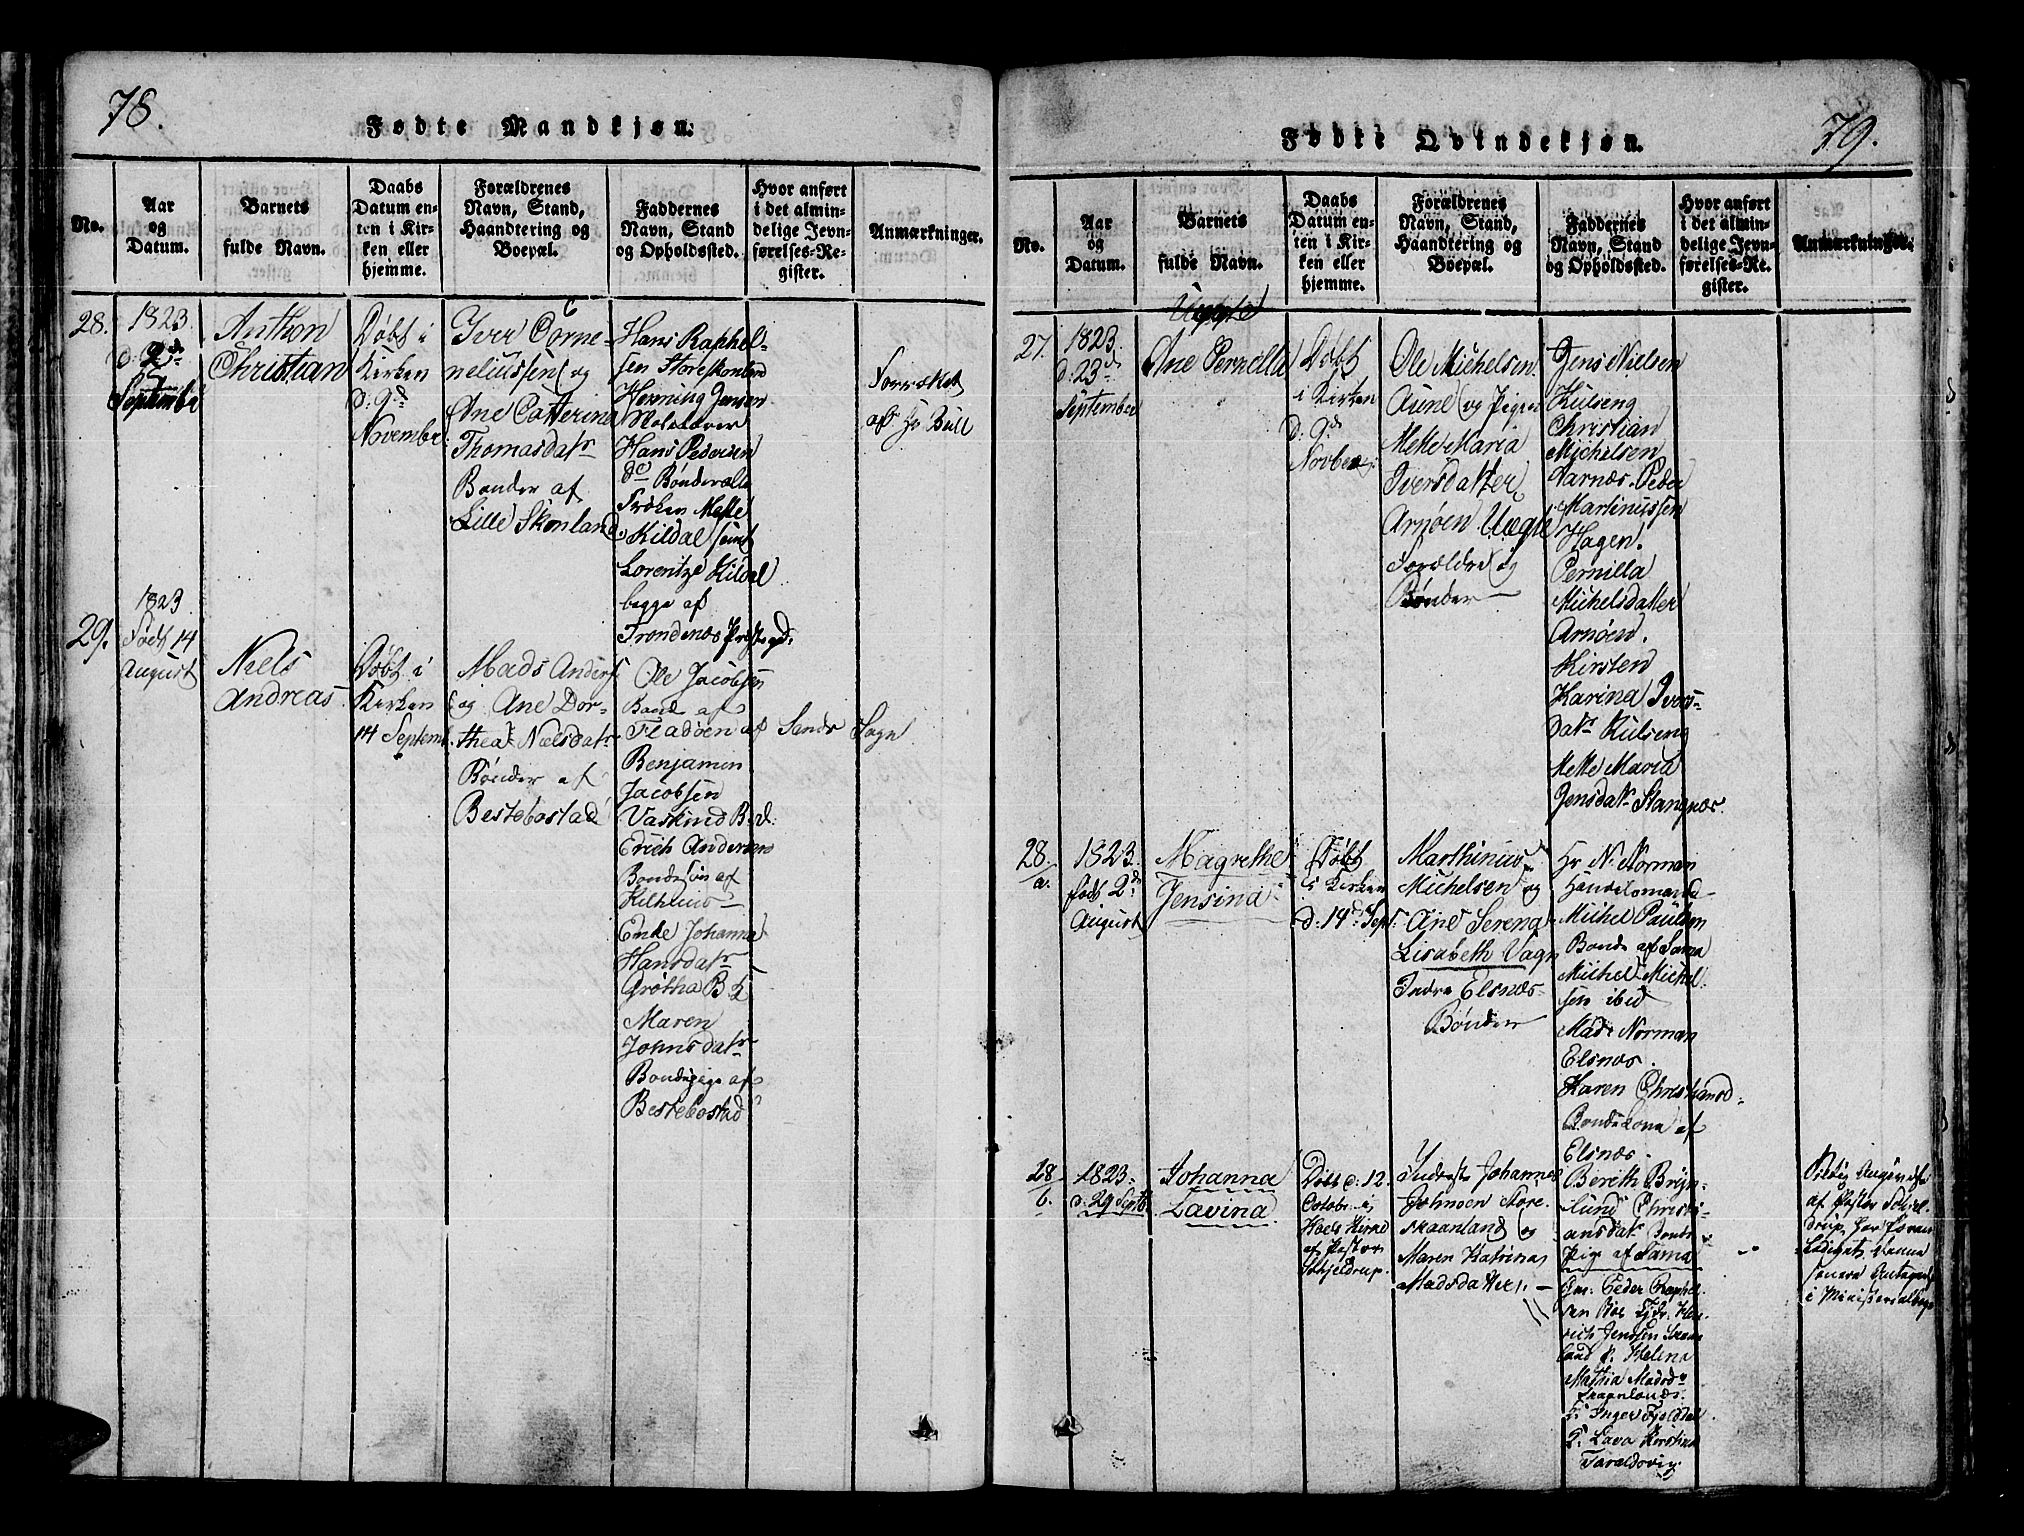 78.
Fødte Mandkjøn.
No.
Aar
og
Datum.
Barnets
fulde Navn.
Daabs
Datum en-
ten i Kir-
ken eller
hjemme.
Forældrenes
Navn, Stand,
Haandtering og
Boepæl.
Faddernes
Navn, Stand
og Opholdssted.
Hvor anført
i det almin-
delige Jevn-
førelses-Re-
gister.
Anmærkninger.
28.
1823
d: 2d
September
Anthon
Christian
Døbt i
Kirken
d: 9d
Novembr
Iver Corne-
neliussen og
Ane Catterina
Thomasdatr
Bønder af
Lille Skonland
Hans Raphel-
sen Storeskonland
Henning Jensen
Hans Pedersen
do Bønder alle
Frøken Mette
Kildal samt
Lorentze Kildal
begge af
Trondenæs Prestegd.
af Hr Bull
29.
1823
Født 14
August
Niels
Andreas
Døbt i
Kirken
14 Septemb.
Mads Anders
og Ane Dor-
thea Nielsdatr
Bønder af
Bestebostad
Ole Jacobsen
Bonde af
Fladøen af Sands Sogn
Benjamin
Jacobsen
Vaskind B.d.
Erich Andersen
Bondesøn af
Enke Johanna
Hansdatr
Grøtha B.k
Maren
Johnsdatr
Bondepige af
Bestebostad
79.
Fødte Qvindekjøn.
No.
Aar
og
Datum.
Barnets
fulde Navn.
Daabs
Datum en-
ten i Kir-
ken eller
hjemme.
Forældrenes
Navn, Stand,
Haandtering og
Boepæl.
Faddernes
Navn, Stand
og Opholdssted.
Hvor anført
i det almin-
delige Jevn-
førelses-Re-
gister.
Anmærkninger.
27.
1823.
d. 23d
September
Uægte
Ane Pernella
Døbt
i Kirken
d. 9d
Novber
Ole Michelsen
Aune og Pigen
Mette Maria
Iversdatter
Arnøen Uægte
Forældre og
Bønder
Jens Nielsen
Kulseng
Christian
Michelsen
Varnæs. Peder
Martinussen
Hagen.
Pernilla
Michelsdatter
Arnøen.
Kirsten
Karina Ivers-
datr Kulseng
Mette Maria
Jensdatr Stangnæs
28
a.
1823.
født 2d
August
Magrethe
Jensina
Døbt
i Kirken
d. 14d Sept.
Marthinus
Michelsen og
Ane Serena
Lisabeth Vagn
Indre Elsnæs
Bønder
Hr N. Norman
Handelsmand
Michel Paulsen
Bonde af Sama
Michel Michel
sen ibid
Mad. Norman
Elsnæs.
Karen Christiansd.
Bondekone af
Elsnæs.
28
b.
1823.
d. 29 Septb.
Johanna
Lavina
Døbt d. 12.
Octobr. i
Hoels Kirke
af Pastor
Schjeldrup.
Inderst Johannes
Johnsen Store
skaanland og
Maren Katrina
Madsdatter.
Bereth Brÿn-
lund Christi-
ansdatr Bonde
Pige af Sama
Gm. Peder Raphel
sen Boe Hen-
rich Jenssen Skaan
land P. Helena
Mathia Madsdr
Skaanland.
P. Inger Fjeldal.
P. Lava Kirstina
Taraldsvig.
af Pastor Schjel-
drup, har foran
i Ministerialbogen